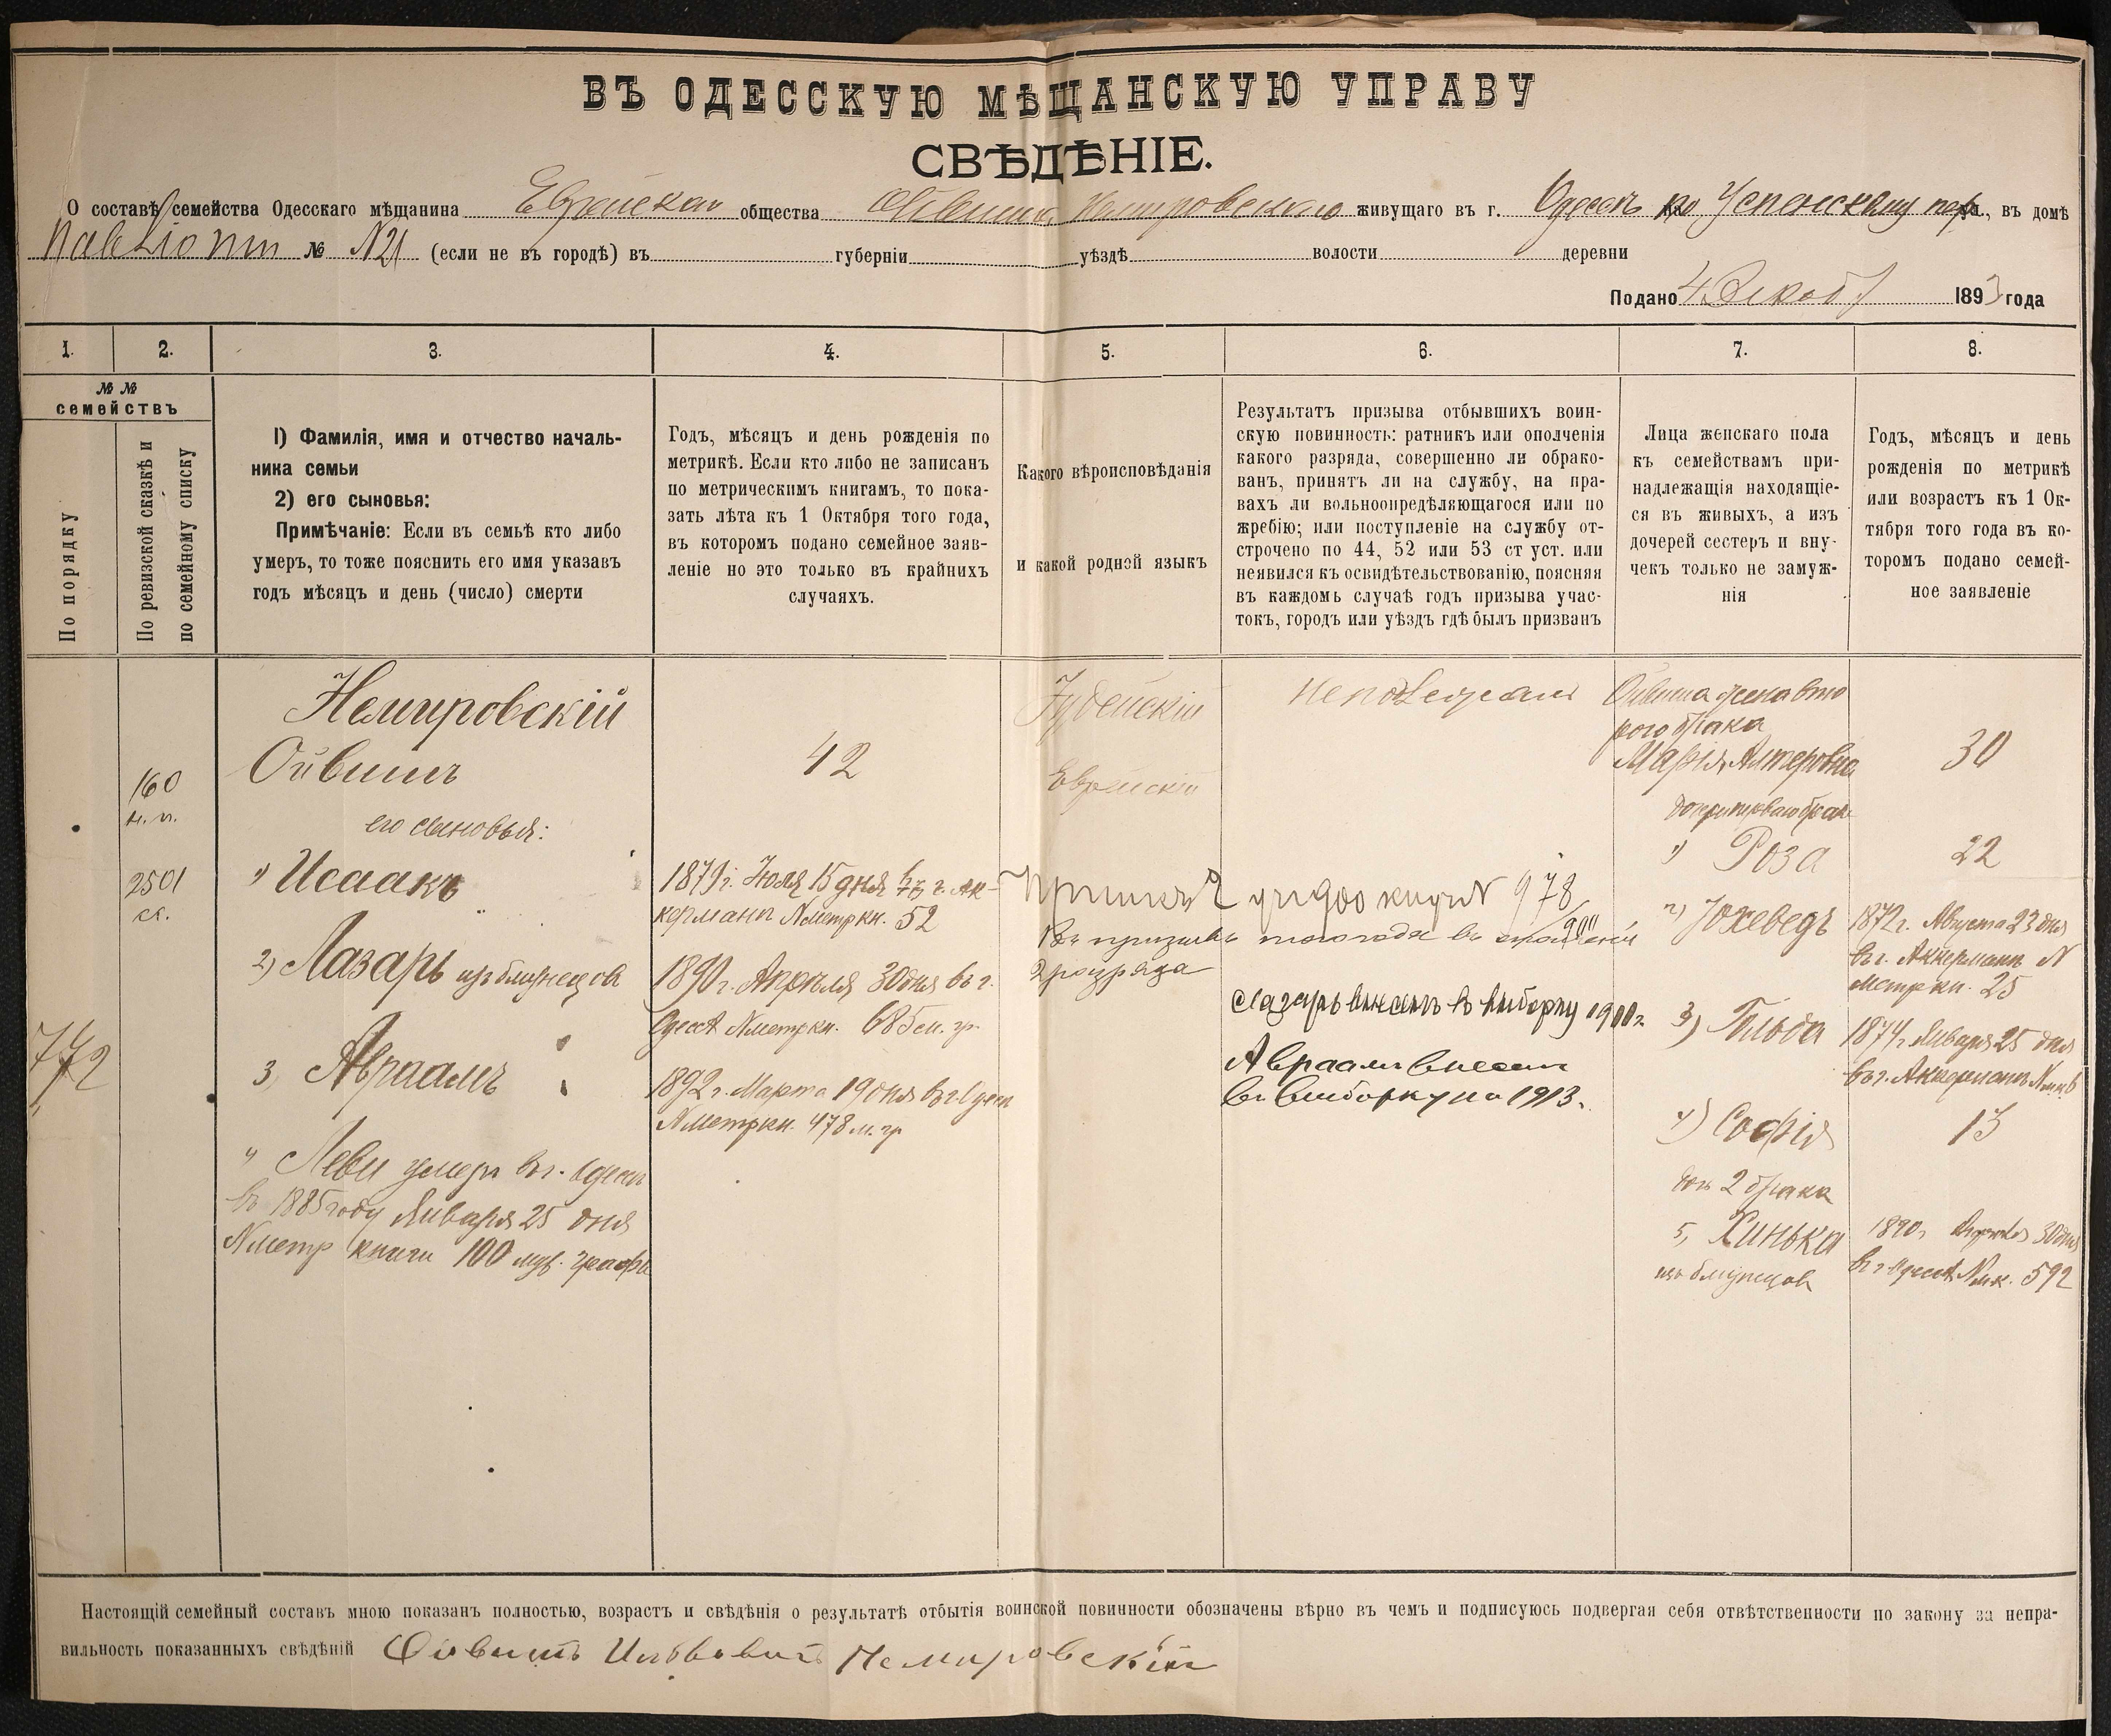 ВЪ ОДЕССКУЮ МѢЩАНСКУЮ УПРАВУ
СВѢДѢНІЕ.
О составѣ семейства Одесскаго мѣщанина Еврейскаго общества Немировскаго живущаго въ г. Одессѣ по Успенскому пер., въ домѣ
№ N21 (если не въ городѣ) въ губерніи уѣздѣ волости деревни
Подано 4 Декаб 1893 года
1. 2. 3. 4. 5. 6. 7. 8.
№ №
семействъ
По порядку
По ревизской сказкѣ и
по семейному списку
1) Фамилія, имя и отчество началь-
ника семьи
2) его сыновья:
Примѣчаніе: Если въ семьѣ кто либо
умеръ, то тоже пояснить его имя указавъ
годъ мѣсяцъ и день (число) смерти
Годъ, мѣсяцъ и день рожденія по
метрикѣ. Если кто либо не записанъ
по метрическимъ книгамъ, то пока-
зать лѣта къ 1 Октября того года,
въ которомъ подано семейное заяв-
леніе но это только въ крайнихъ
случаяхъ.
Какого вѣроисповѣданія
и какой родной языкъ
Результатъ призыва отбывшихъ воин-
скую повинность: ратникъ или ополченія
какого разряда, совершенно ли обрако-
ванъ, принятъ ли на службу, на пра-
вахъ ли вольноопредѣляющагося или по
жребію; или поступленіе на службу от-
строчено по 44, 52 или 53 ст уст. или
неявился къ освидѣтельствованію, поясняя
въ каждомъ случаѣ годъ призыва учас-
токъ, городъ или уѣздъ гдѣ былъ призванъ
Лица женскаго пола
къ семействамъ при-
надлежащія находящіе-
ся въ живыхъ, а изъ
дочерей сестеръ и вну-
чекъ только не замуж-
нія
Годъ, мѣсяцъ и день
рожденія по метрикѣ
или возрастъ къ 1 Ок-
тября того года въ ко-
торомъ подано семей-
ное заявленіе
772
160
н. п.
2501
сс.
Немировскій
Ойвишъ
его сыновья:
1) Исаакъ
2) Лазарь изъ близнецовъ
3, Авраамъ
4 Леви умеръ въ г. Одессѣ
въ 1885 году Января 25 дня
N метр книги 100 муж. графы
42
1879 г. Іюля 15 дня въ г. Ак-
керманѣ N метр кн. 52
1890 г. Апрѣля 30 дня въ г.
Одессѣ N метр кн. 685 м. гр.
1892 г. Марта 19 дня въ г. Одессѣ
N метр кн. 478 м. гр
Іудейскій
Еврейскій
978
2 разряда
Лазарь внесенъ въ выборку
Авраамъ внесенъ
въ выборку на 1913.
Ойвиша жена вто
рого брака
Марія Алтеровна
1) Роза
2) Юхеведъ
3) Гольда
4) Софія
доч 2 брака
5, Хинька
изъ близнецовъ
30
22
1872 г. Августа 23 дня
въ г. Аккерманѣ N
метр кн. 25
1874 г Января 25 дня
въ г. Аккерманѣ
13
1890 г Апрѣля 30 дня
въ г Одессѣ N м к. 592
Настоящій семейный составъ мною показанъ полностью, возрастъ и свѣдѣнія о результатѣ отбытія воинской повинности обозначены вѣрно въ чемъ и подписуюсь подвергая себя отвѣтственности по закону за непра-
вильность показанныхъ свѣдѣній Ойвишъ Немировскій